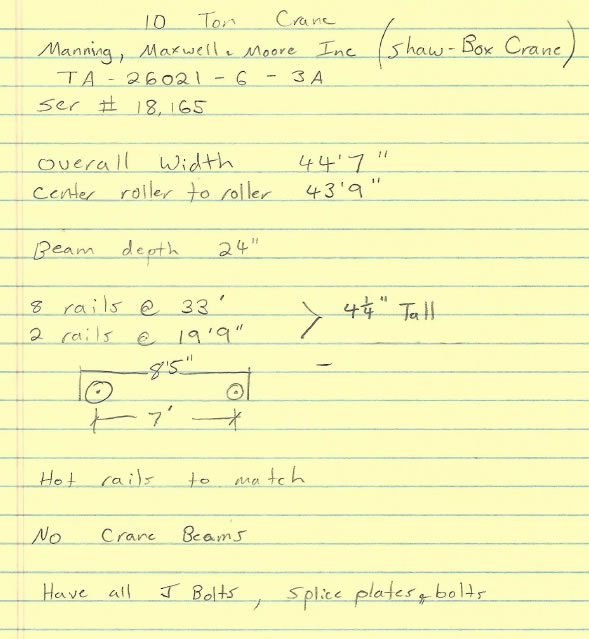 10 Ton Crane
Manning, Maxwell & Moore Inc (Shaw-Box Crane)
TA - 26021 - 6 - 3A
Ser # 18,165
Overall Width 44'7"
Center roller to roller 43'9"
Beam depth 24"
8 rails @ 33' > 4¼" Tall
2 rails @ 19'9"
8'5"
7'
Hot rails to match
No Crane Beams
Have all J Bolts, splice plates & bolts